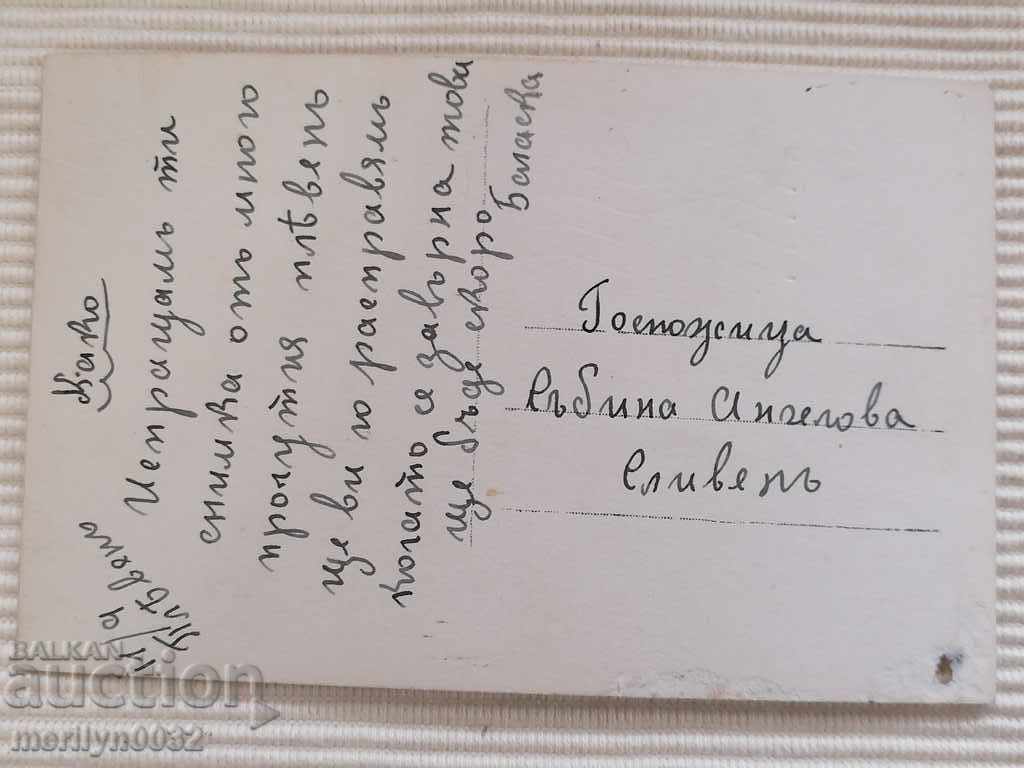 Како
Плѣвенъ
Испращамъ ти
снимка отъ много
прочутия плѣвенъ
ще ви го расправямъ
когато се завърна това
ще бъде скоро
Баласка
Госпожица
Събина Ангелова
Сливенъ
BALKAN
auction
merilyn0032